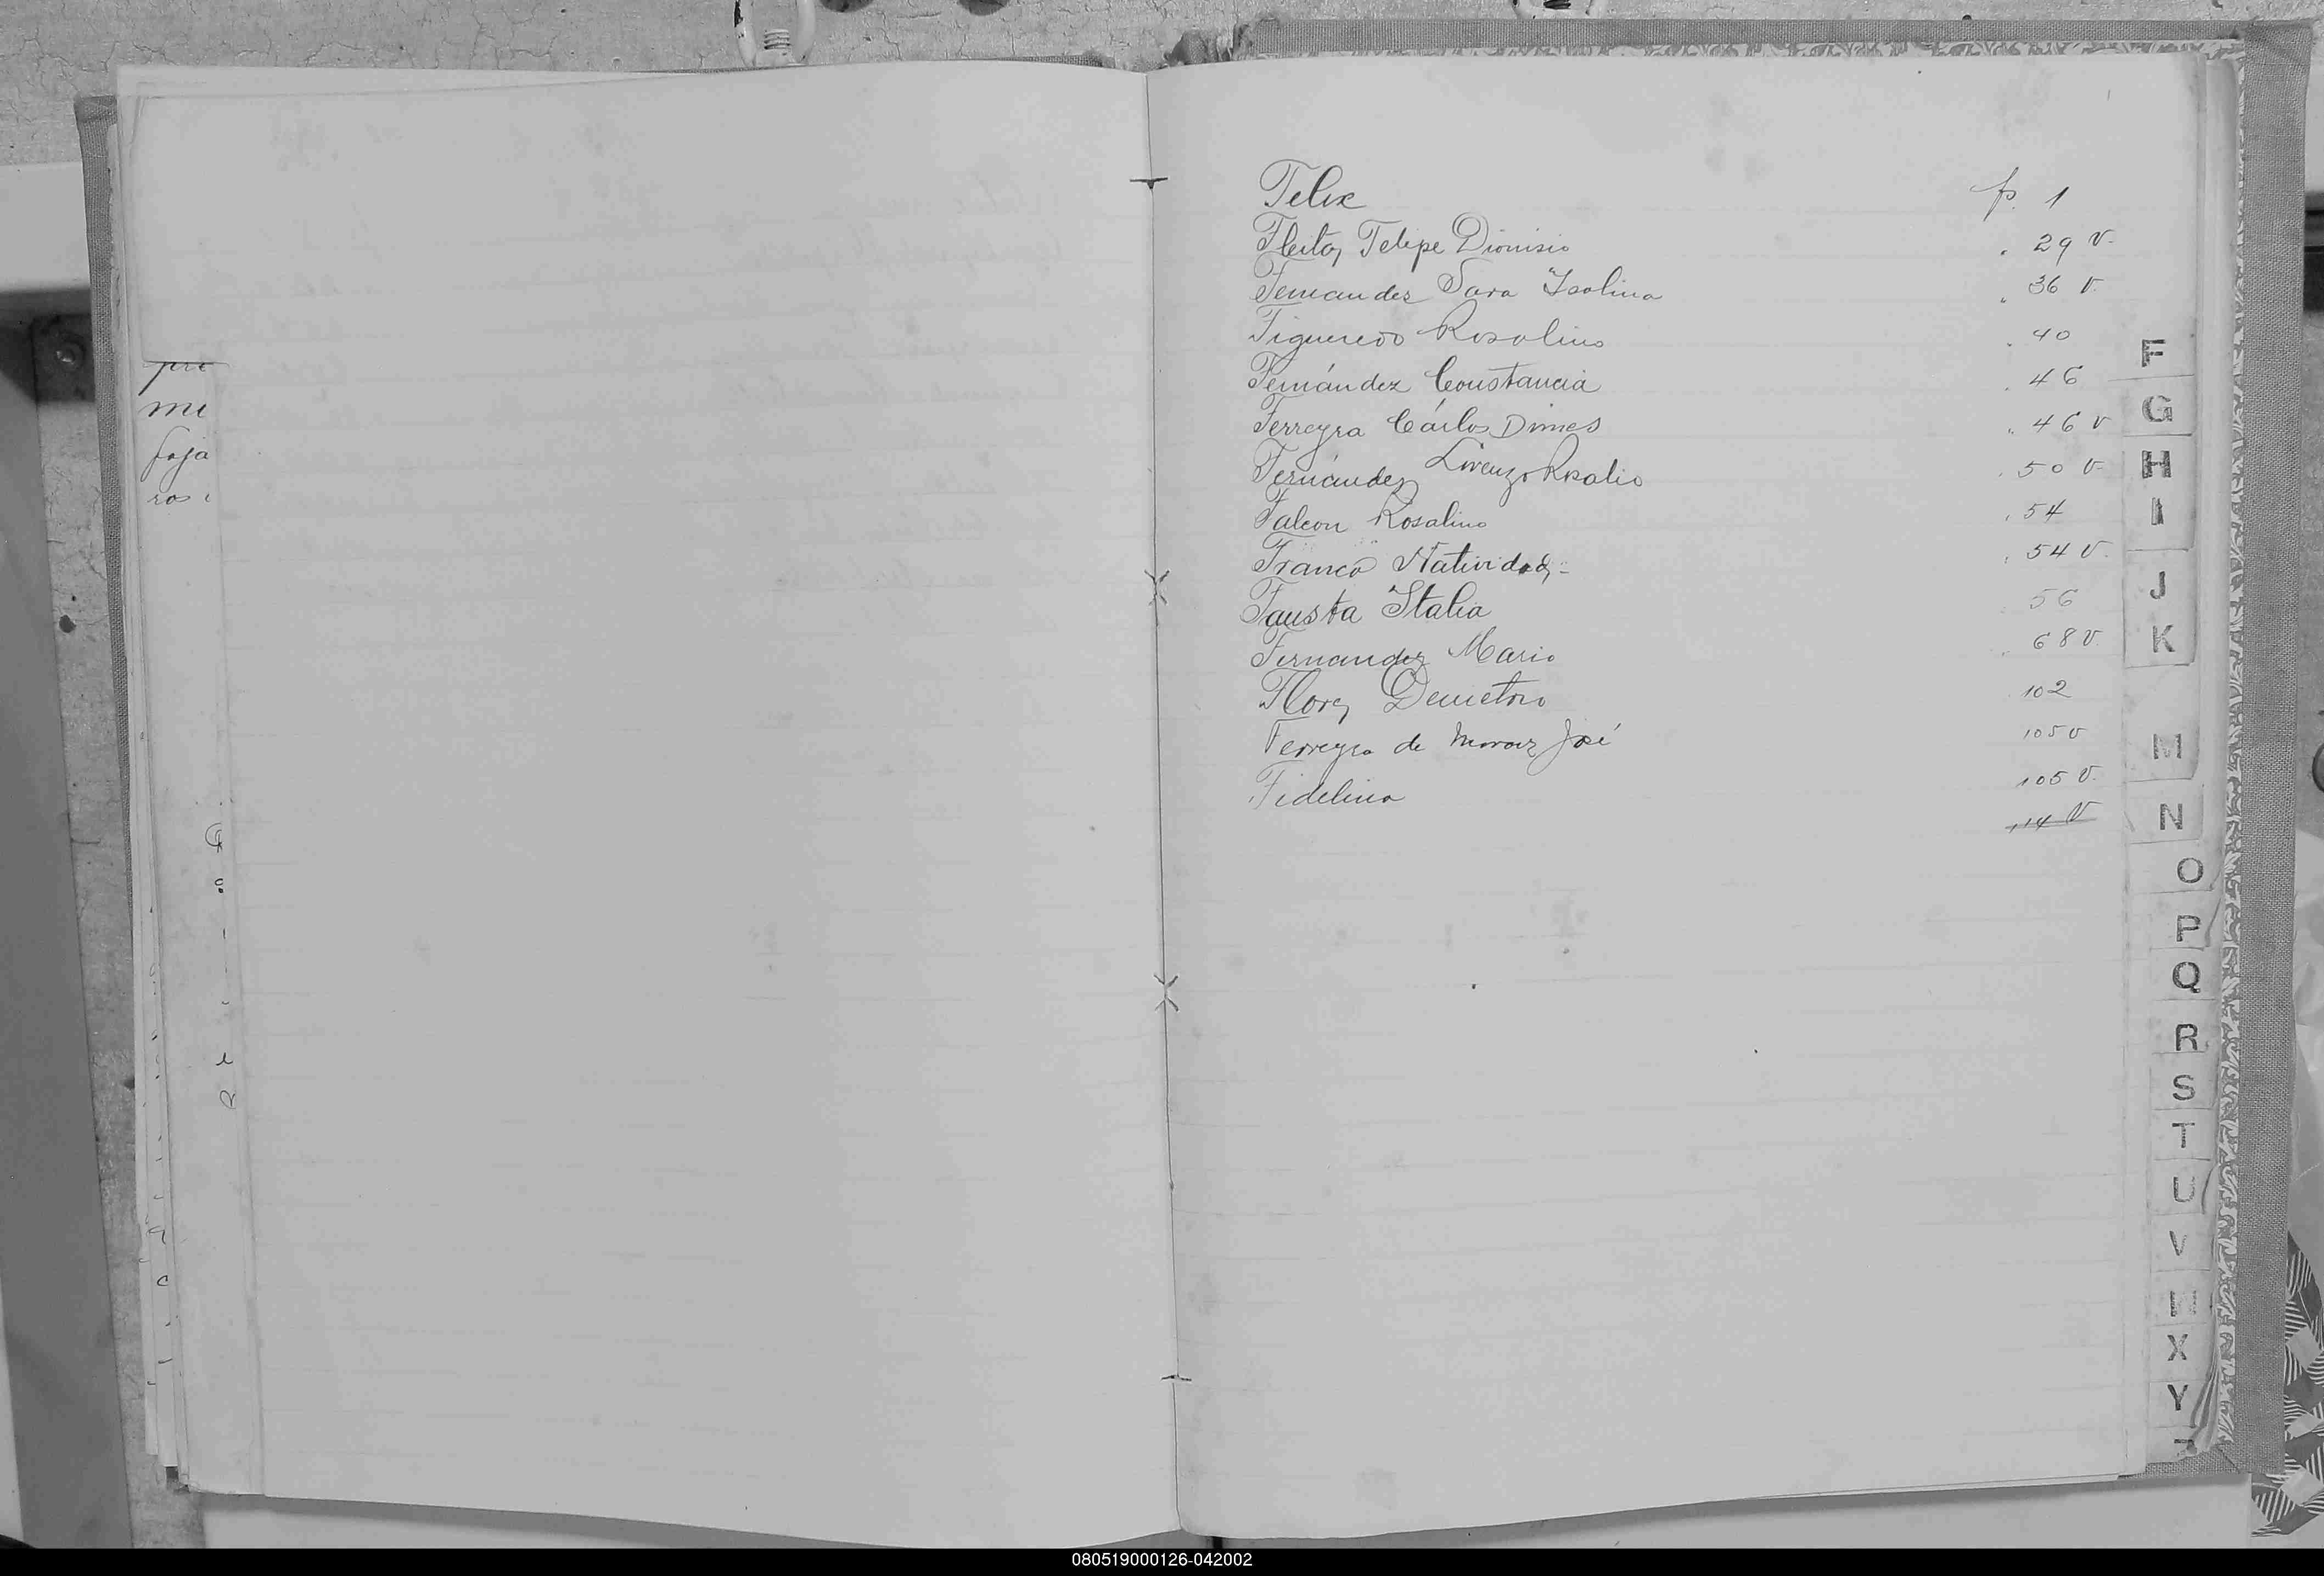 pre
me
foja
ros
Felix fs. 1
Fleitas Felipe Dionisio " 29 v.
Fernandez Sara Isolina " 36 v.
Figueredo Rosalino " 40
Fernández Constancia " 46
Ferreyra Cárlos Dimes " 46 v
Fernández Lorenzo Rosalio " 50 v
Falcon Rosalino " 54
Franco Natividad,- " 54 v.
Fausta Italia 56
Fernandez Mario " 68 v.
Flores Demetrio 102
Ferreyra de Moraez José 105 v
Fidelina 105 v.
114 v
F
G
H
I
J
K
M
N
O
P
Q
R
S
T
U
V
X
Y
080519000126-042002